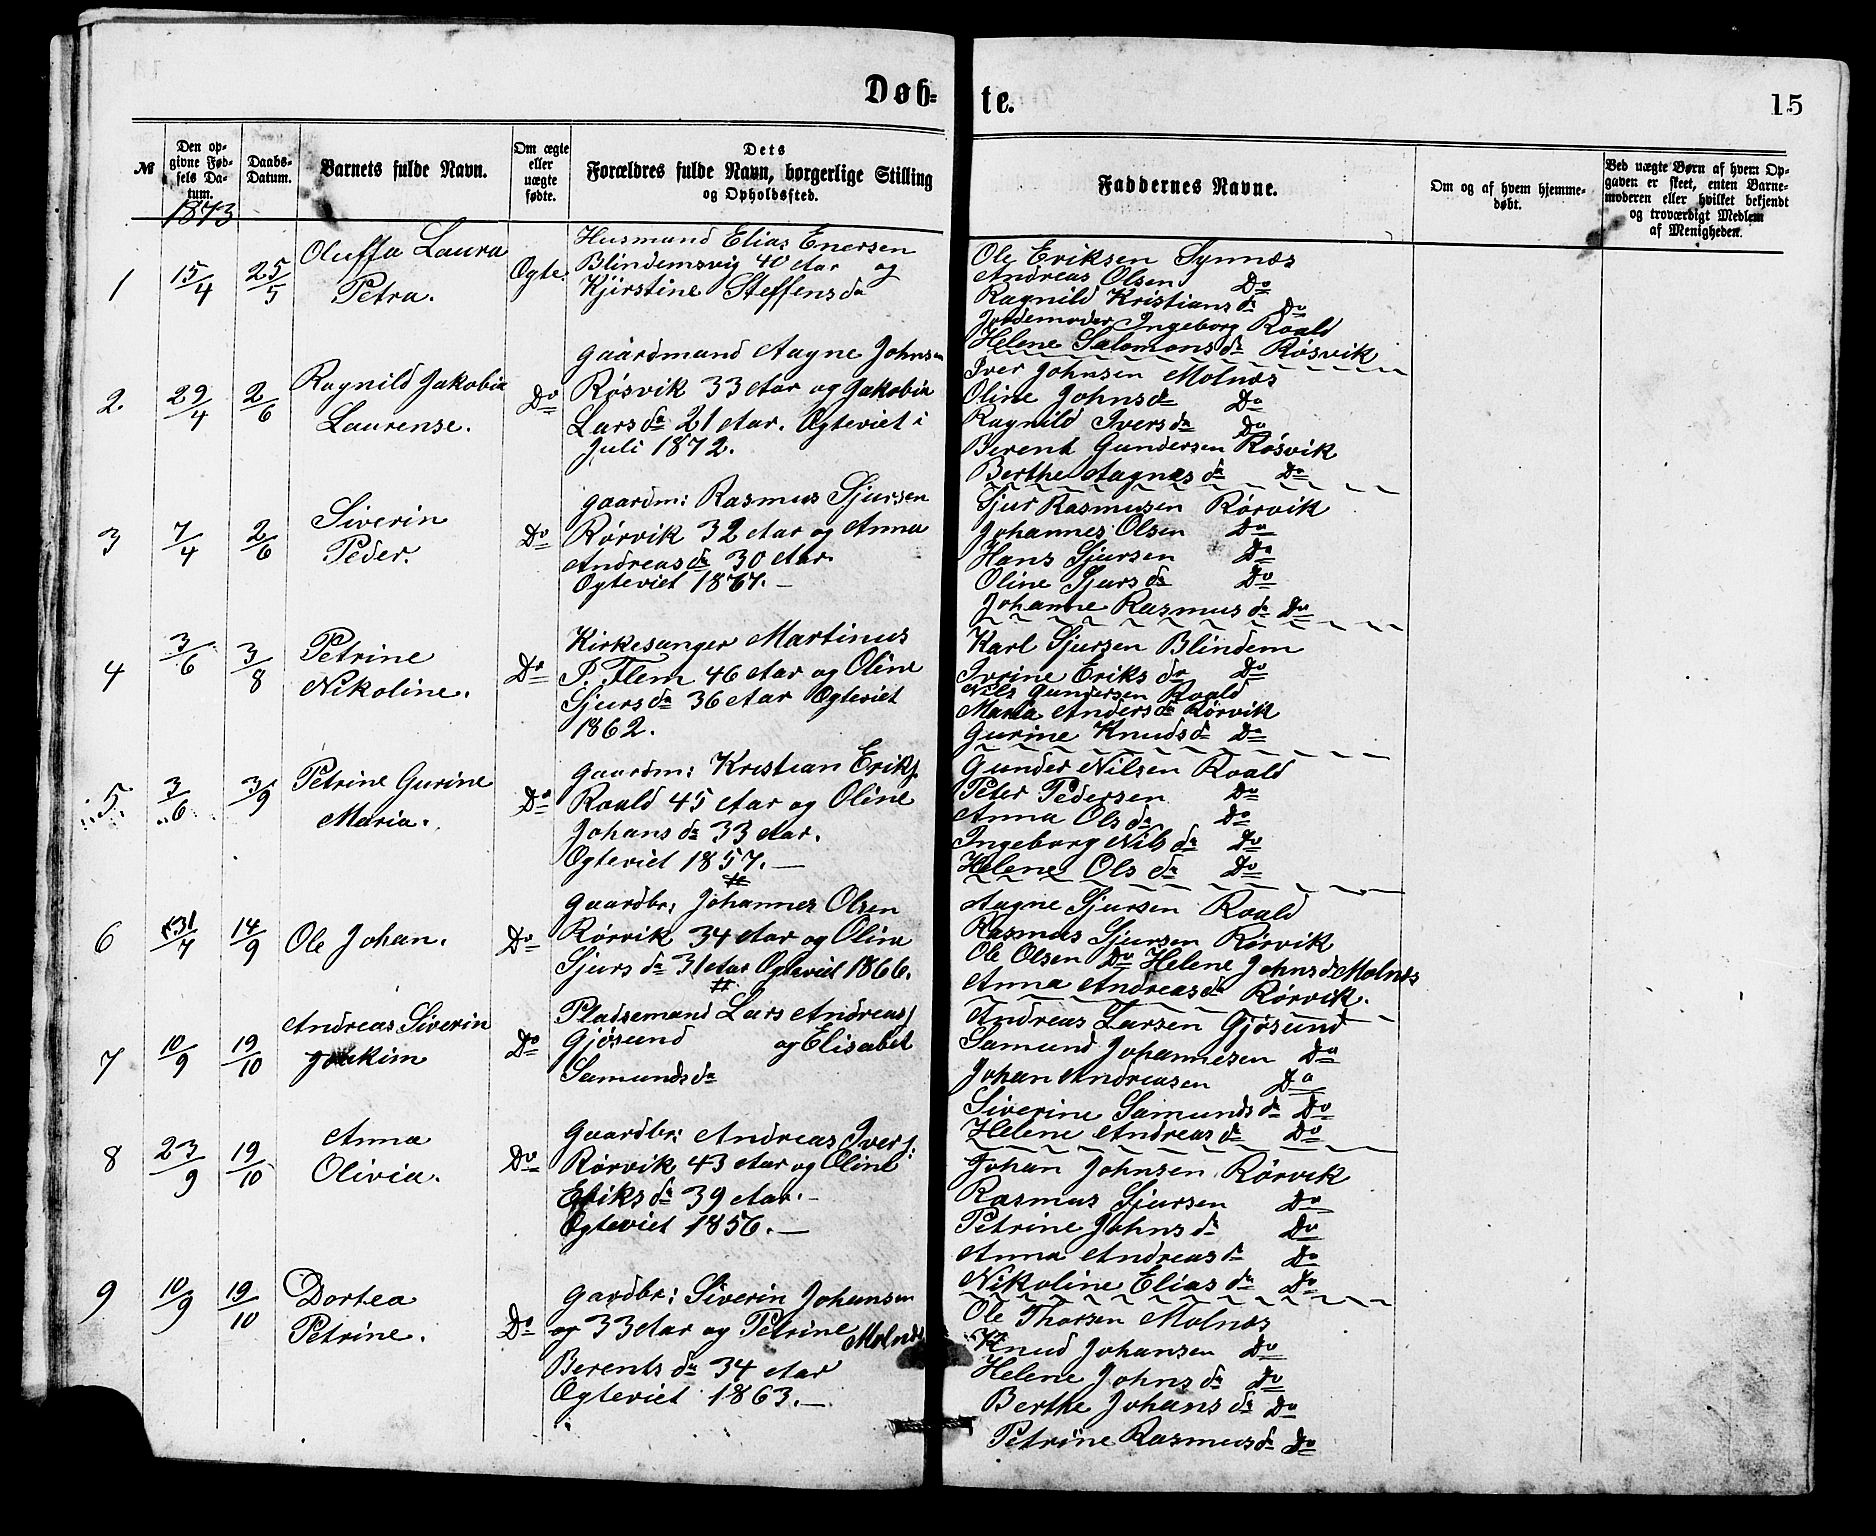 Døb-
te.
15
№
Den op-
givne Fød-
sels Da-
tum.
Daabs-
Datum.
Barnets fulde Navn.
Om ægte
eller
uægte
fødte.
Dets
Forældres fulde Navn, borgerlige Stilling
og Opholdssted.
Faddernes Navne.
Om og af hvem hjemme-
døbt.
Ved uægte Børn af hvem Op-
gaven er skeet, enten Barne-
moderen eller hvilket bekjendt
og troværdigt Medlem
af Menigheden.
1873
1
15/4
25/5
Oluffa Laura
Petra.
Ægte.
Husmand Elias Enersen
Blindemsvig 40 Aar og
Kjirstine Steffensda
Ole Eriksen Synnæs
Andreas Olsen Do
Ragnild Kristiansda Do
Jordemoder Ingeborg Roald
Helene Salomonsda Røsvik
2
29/4
2/6
Ragnild Jakobia
Laurense.
Do
Gaardmand Aagne Johnsen
Røsvik 33 Aar og Jakobia
Larsda 21 Aar. Ægteviet i
Juli 1872.
Iver Johnsen Molnæs
Oline Johnsda Do
Ragnild Iversda Do
Berent Gundersen Røsvik
Berthe Aagnesda Do
3
7/4
2/6
Siverin
Peder.
Do
Gaardm: Rasmus Sjursen
Rørvik 32 Aar og Anna
Andreasda 30 Aar.
Ægteviet 1867.—
Sjur Rasmusen Rørvik
Johannes Olsen Do
Hans Sjursen Do
Oline Sjursda Do
Johanne Rasmusda Do
4
3/6
3/8
Petrine
Nikoline.
Do
Kirkesanger Martinus
P. Flem 46 Aar og Oline
Sjursda 36 Aar Ægteviet
1862.
Karl Sjursen Blindem
Ivrine Eriksda Do
Nils Gundersen Roald
Maria Andersda Rørvik
Gurine Knudsda Do
5
3/6
3/9
Petrine Gurine
Maria.
Do
Gaardm: Kristian Eriks.
Roald 45 Aar og Oline
Johansda 33 Aar.
Ægteviet 1857.—
Gunder Nilsen Roald
Peter Pedersen Do
Anna Olsda Do
Ingeborg Nilsda Do
Helene Olsda Do
6
31/7
14/9
Ole Johan.
Do
Gaardbr: Johannes Olsen
Rørvik 34 Aar og Oline
Sjursda 31 Aar Ægteviet 1866.
Aagne Sjursen Roald
Rasmus Sjursen Rørvik
Ole Olsen Do Helene Johnsda Molnæs
Anna Andreasda Rørvik.
7
10/9
19/10
Andreas Siverin
Joakim
Do
Pladsemand Lars Andreas.
Gjøsund og Elisabet
Samundsda
Andreas Larsen Gjøsund
Samund Johannesen Do
Johan Andreasen Do
Siverine Samundsda Do
Helene Andreasda Do
8
23/9
19/10
Anna
Olivia.
Do
Gaardbr: Andreas Ivers.
Rørvik 43 Aar og Oline
Eriksda 39 Aar.—
Ægteviet 1856.—
Johan Johnsen Rørvik
Rasmus Sjursen Do
Petrine Johnsda Do
Anna Andreasda Do
Nikoline Eliasda Do
9
10/9
19/10
Dortea
Petrine.
Do
Gardbr: Siverin Johansen
og 33 Aar og Petrine Molnæs
Berentsda 34 Aar
Ægteviet 1863.—
Ole Thorsen Molnæs
Knud Johansen Do
Helene Johnsda Do
Berthe Johansda Do
Petrine Rasmusda Do